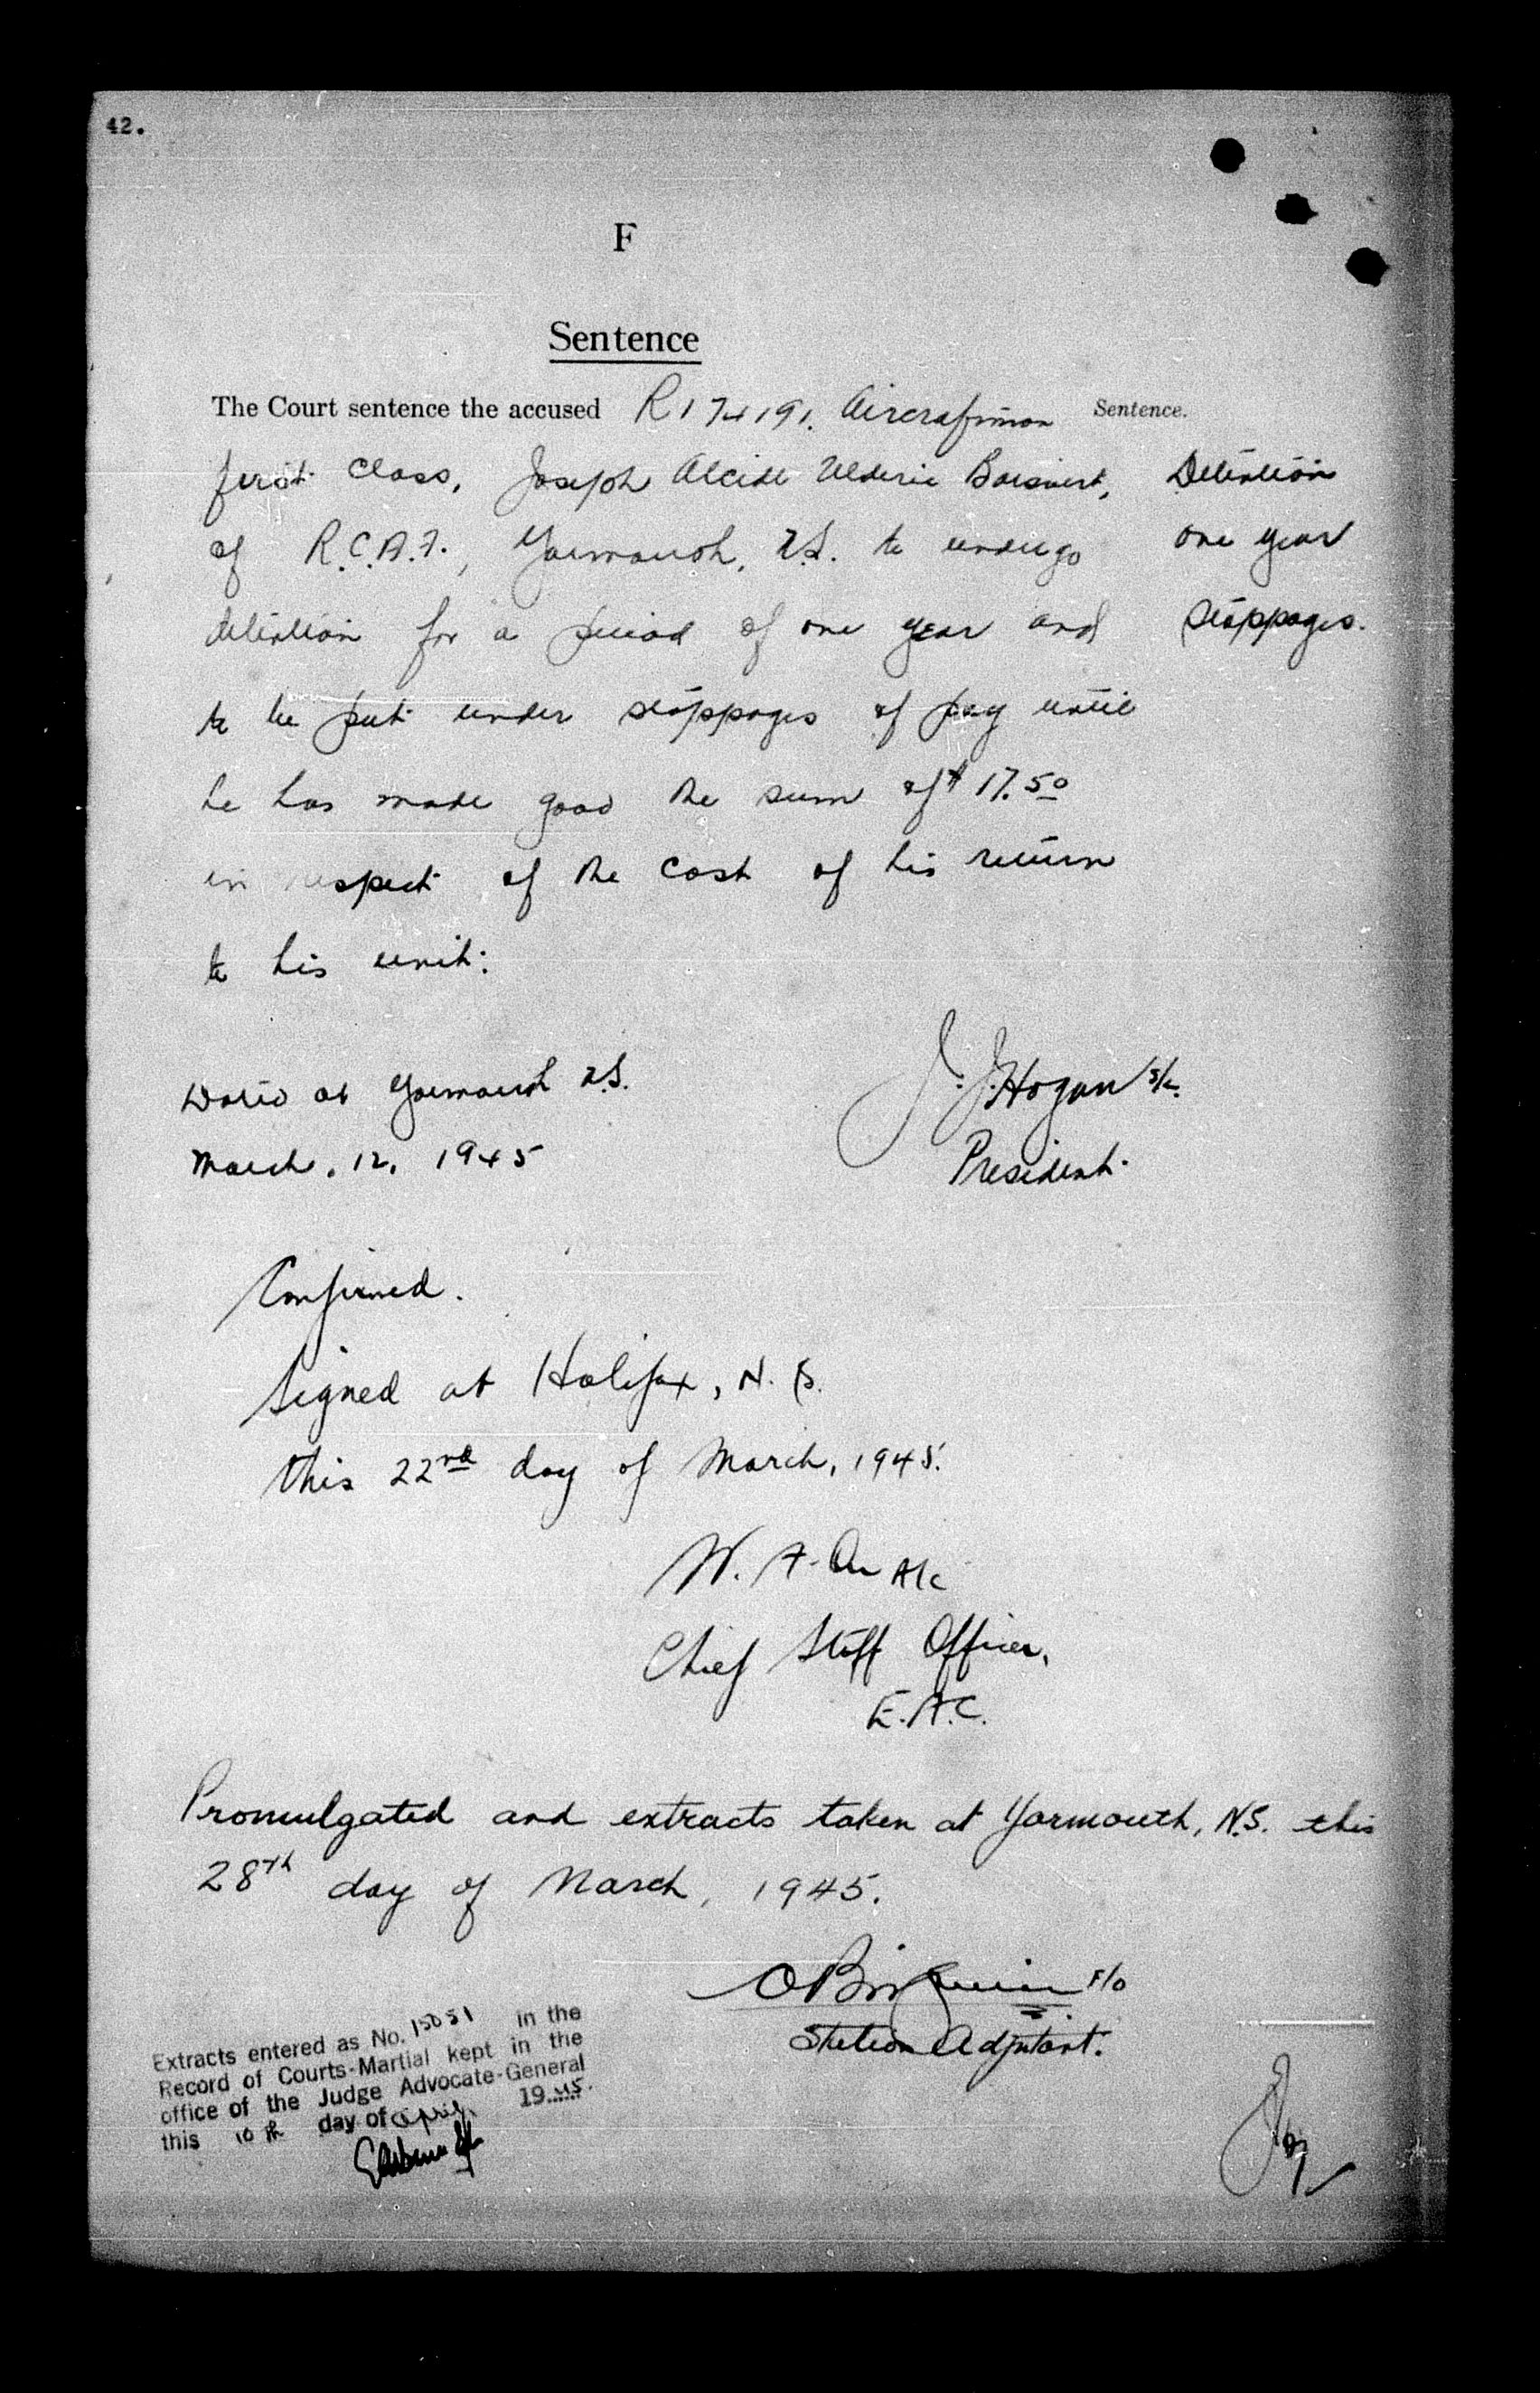 42.
F
Sentence
The Court sentence the accused R174191. Aircraftman
Sentence.
first class, Joseph Alcide Ulderic Boisvert,
Detention
of R.C.A.F., Yarmouth, N.S. to undergo
one year
detention for a period of one year and
Stoppages.
to be put under stoppages of pay until
he has made good the sum of $17.50
in respect of the cost of his return
to his unit.
Dated at Yarmouth N.S.
March. 12, 1945
J. J. Hogan S/L.
President.
Confirmed.
Signed at Halifax, N.S.
this 22nd day of March, 1945.
W. A. A/C
Chief Staff Officer,
E.A.C.
Promulgated and extracts taken at Yarmouth, N.S. this
28th day of March, 1945.
F/O
Station Adjutant.
Extracts entered as No. 15051 in the
Record of Courts-Martial kept in the
office of the Judge Advocate-General
this 10th day of April 1945.